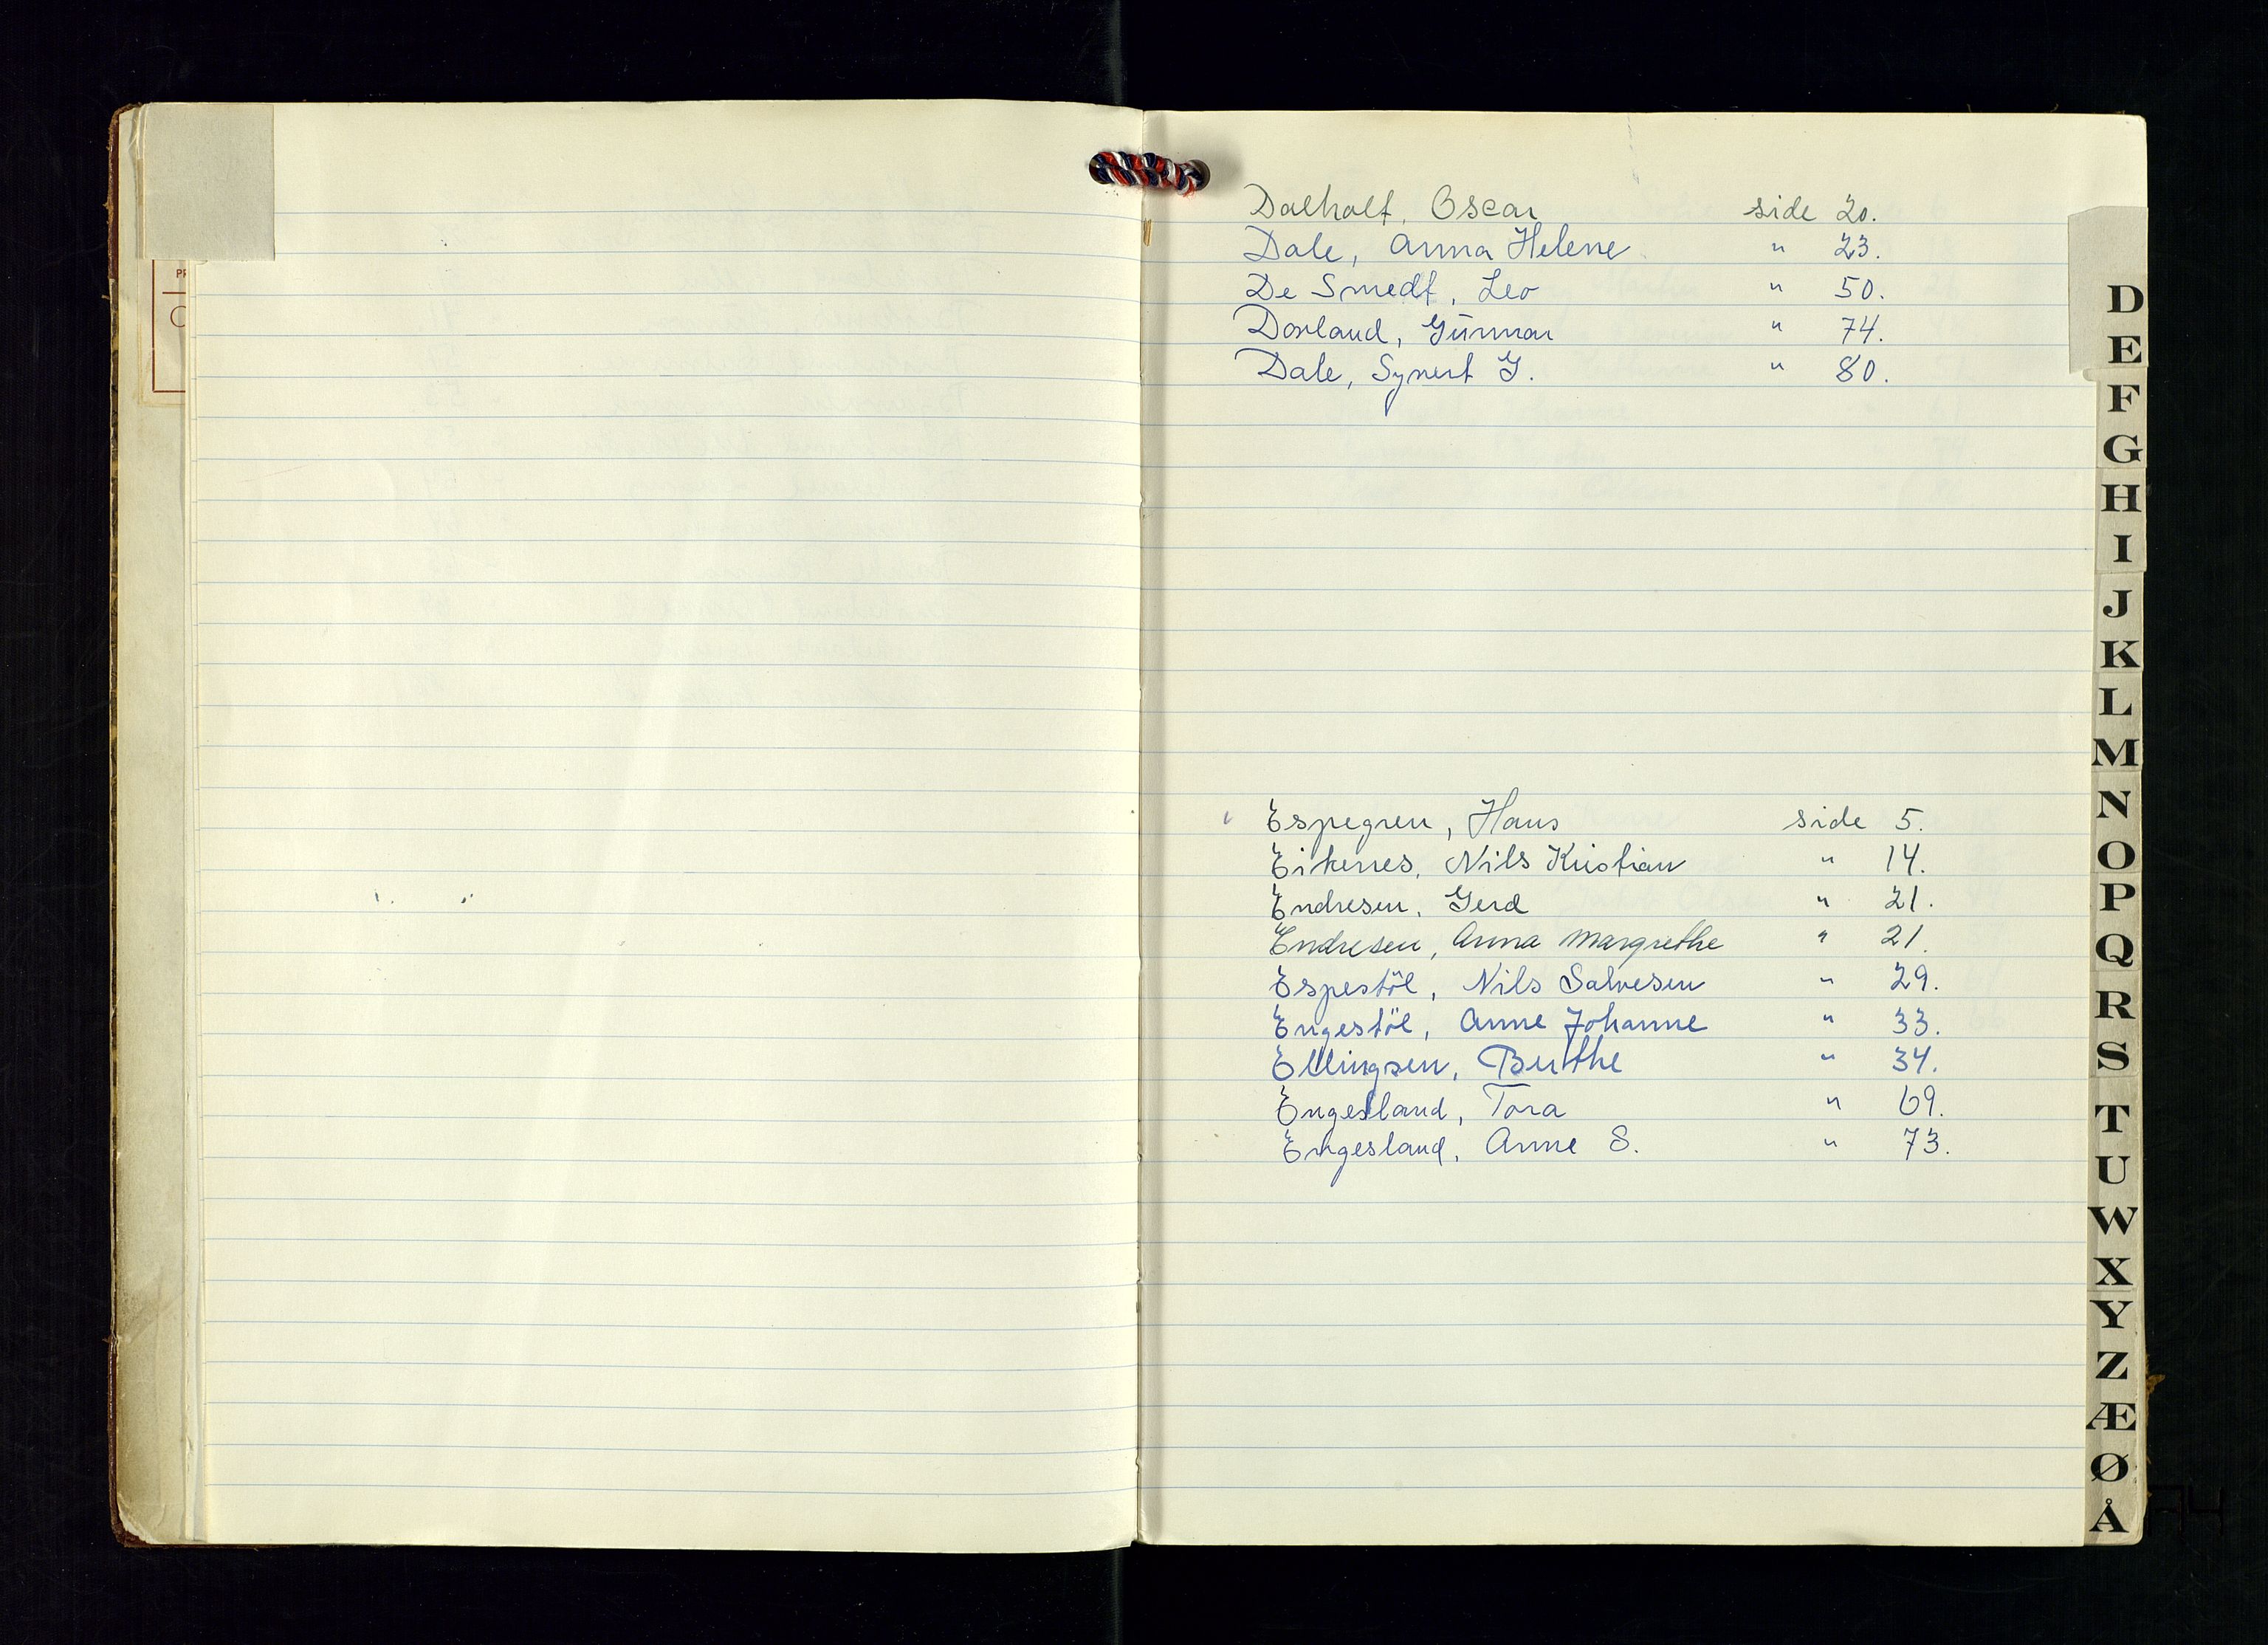 Dalholt, Oscar side 20.
Dale, Anna Helene " 23.
De Smedt, Leo " 50.
Dovland, Gunnar " 74.
Dale, Synert G. " 80.
Espegren, Hans side 5.
Eikenes, Nils Kristian " 14.
Endresen, Gerd " 21.
Endresen, Anna Margrethe " 21.
Espestöl, Nils Salvesen " 29.
Engestöl, Anne Johanne " 33.
Ellingsen, Berthe " 34.
Engesland, Tora " 69.
Engesland, Anne S. " 73.
D
E
F
G
H
I
J
K
L
M
N
O
P
Q
R
S
T
U
W
X
Y
Z
Æ
Ø
Å